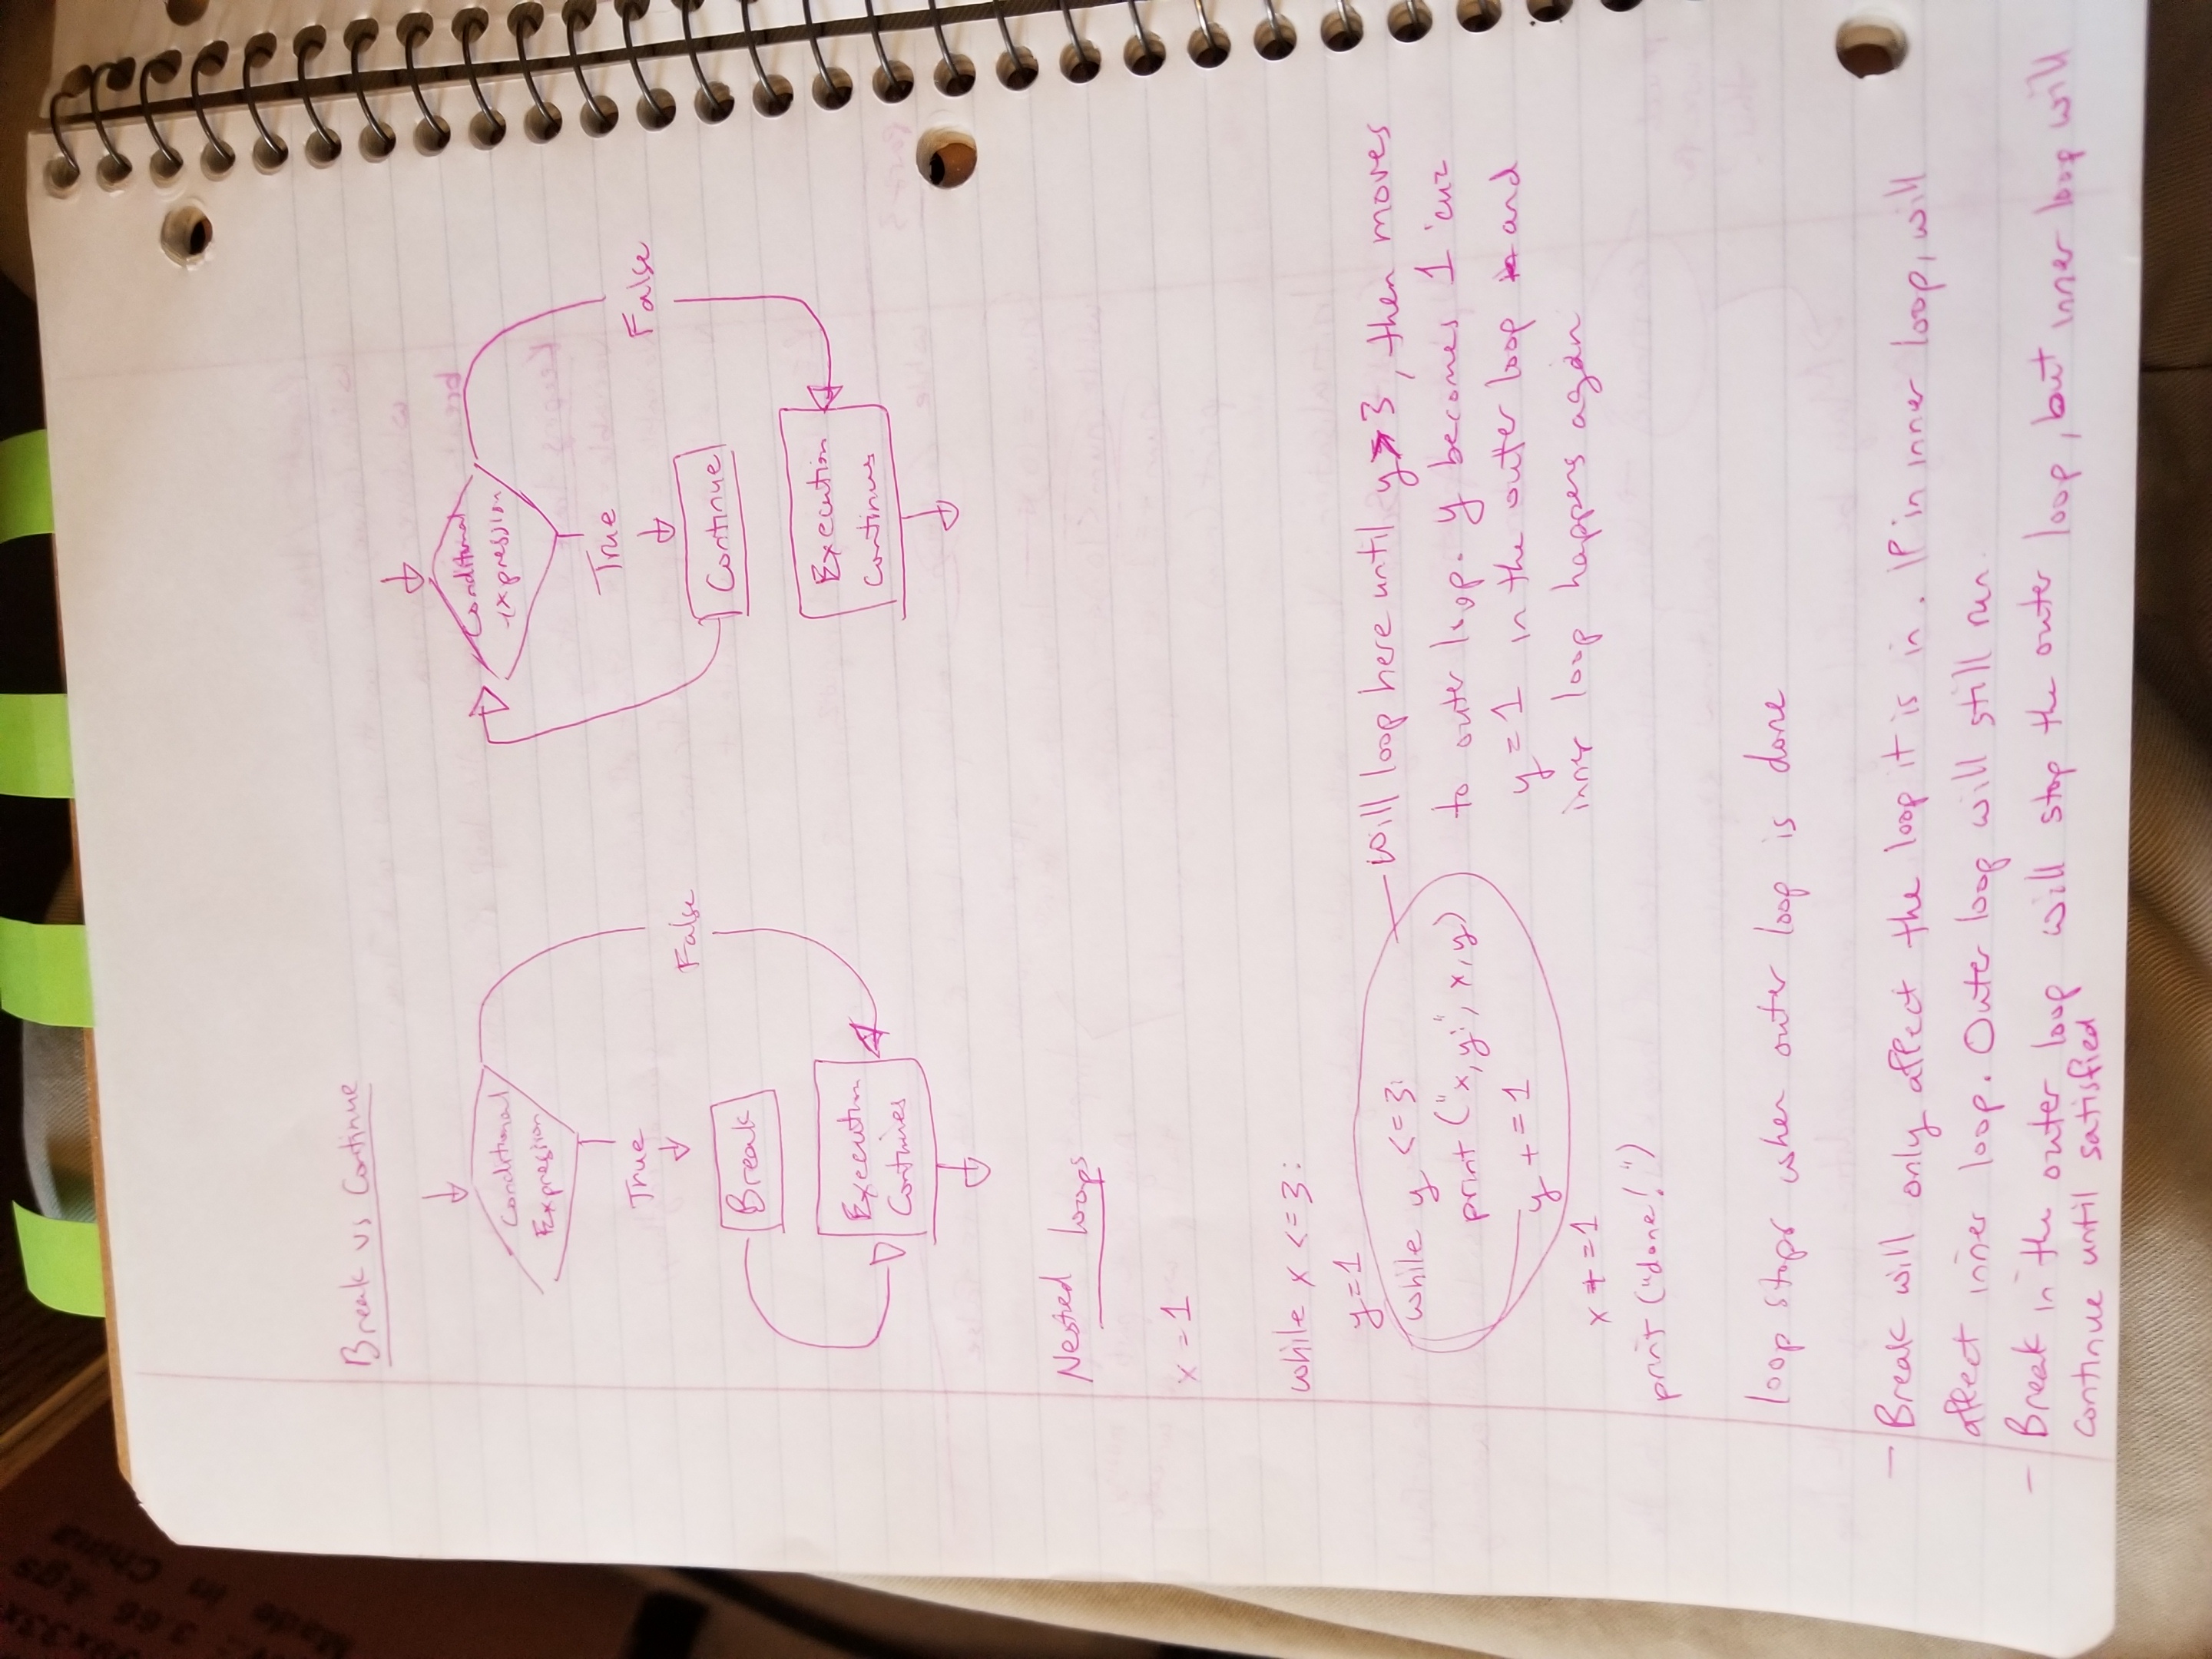 Made in China
3.66 kgs
Break vs Continue
Conditional
Expression
True
False
Break
Execution
Continues
Conditional
Expression
True
False
Continue
Execution
Continues
Nested loops
x = 1
while x <= 3:
y = 1
while y <= 3:
print ("x,y:", x, y)
y += 1
x += 1
print ("done!")
will loop here until y > 3, then moves
to outer loop. y becomes 1 'cuz
y = 1 in the outer loop and
inner loop happens again
loop stops when outer loop is done
- Break will only affect the loop it is in. If in inner loop, will
affect inner loop. Outer loop will still run.
- Break in the outer loop will stop the outer loop, but inner loop will
continue until satisfied